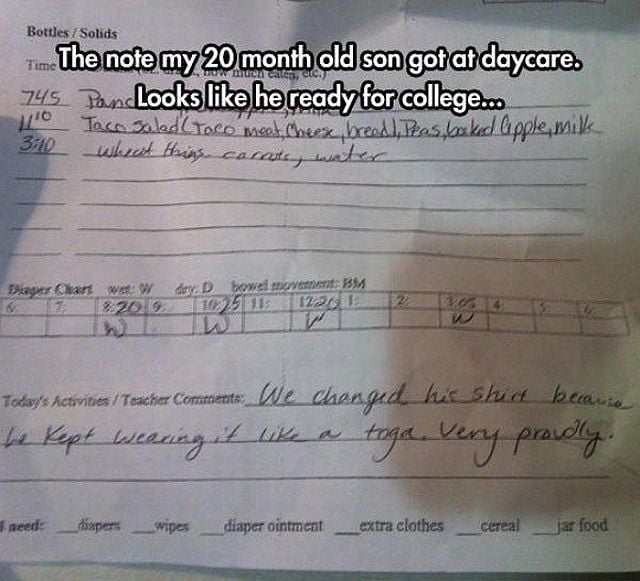 Bottles / Solids
The note my 20 month old son got at daycare.
Time how much eaten, etc.)
Looks like he ready for college...
745 Panc
1110 Taco Salad (Taco meat, Cheese, bread), Peas, baked Apple, milk
3:10 wheat thins carrots, water
Diaper Chart wet: W dry: D bowel movement: BM
6 7 8:20 9 10:25 11: 12:20 1: 2 3:05 4 5 6
W W W W
Today's Activities / Teacher Comments: We changed his shirt because
he kept wearing it like a toga. Very proudly.
I need: __diapers __wipes __diaper ointment __extra clothes __cereal __jar food